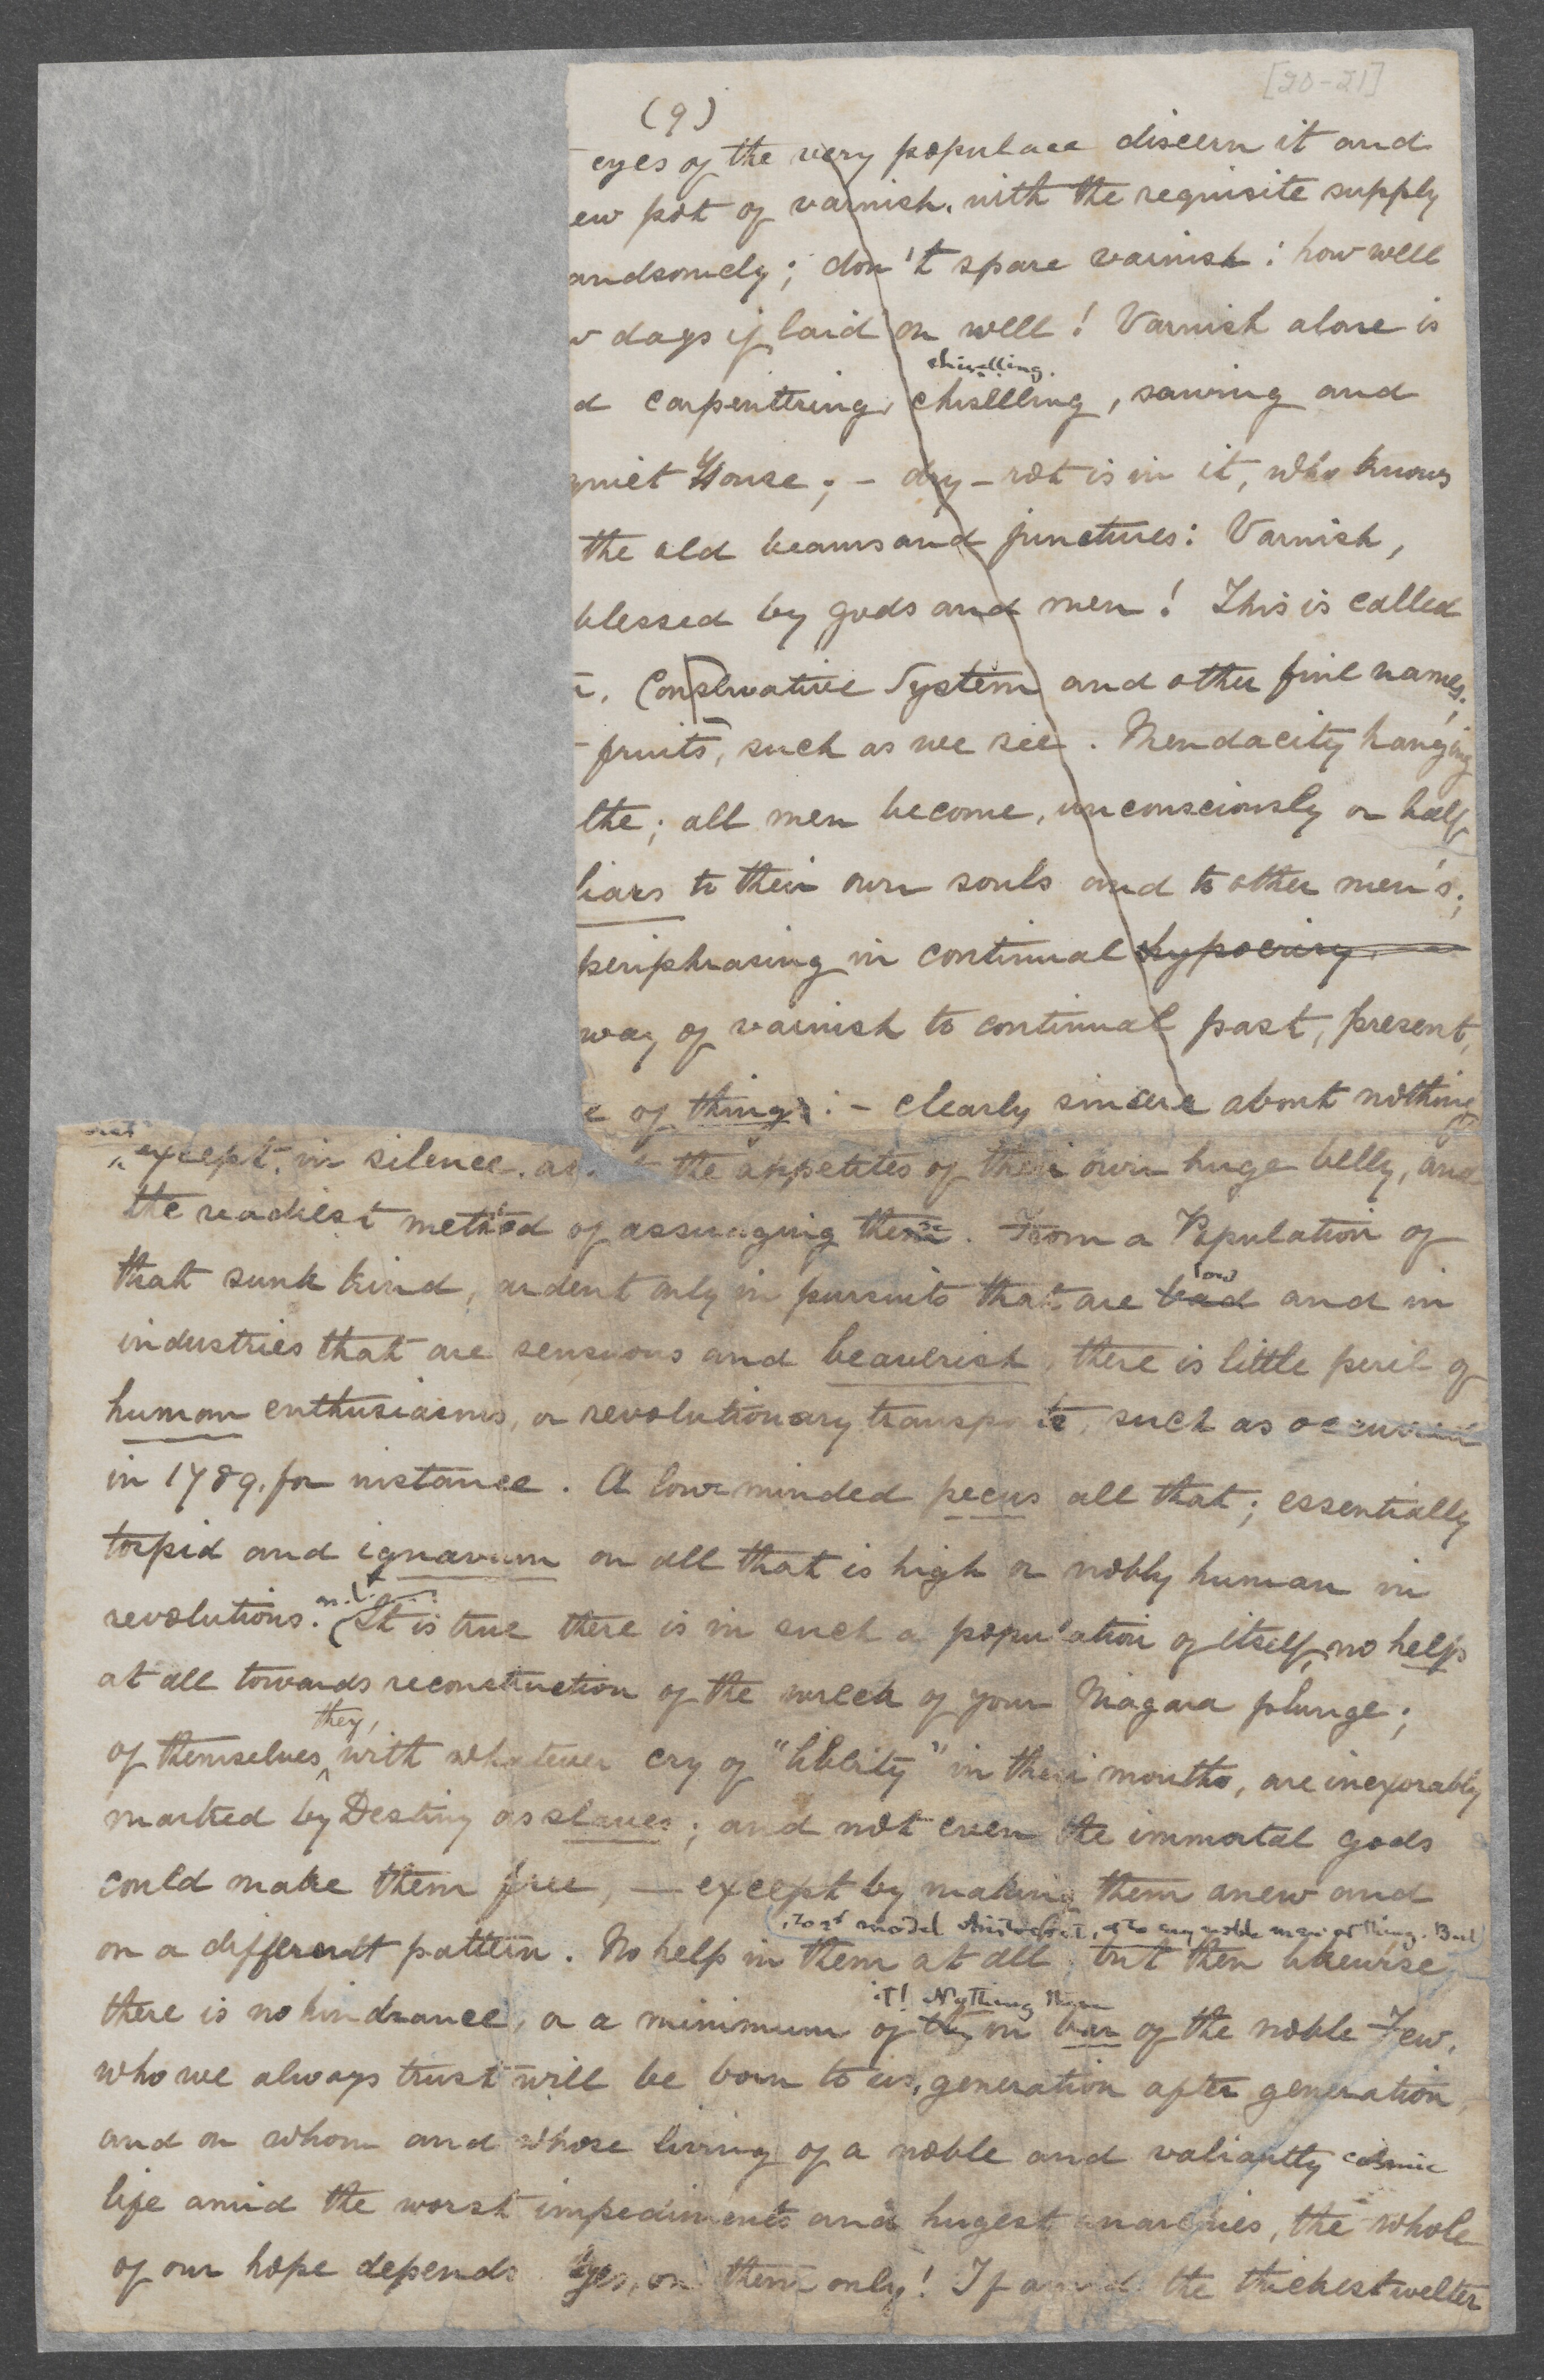 [20-21]
(9)
eyes of the very populace discern it and
ew pot of varnish, with the requisite supply
andsomely; don't spare varnish: how well
w days if laid on well! Varnish alone is
chiselling.
d carpentering, chisllling, sawing and
quiet House; – dry-rot is in it, who knows
the old beams and junctures: Varnish,
blessed by gods and men! This is called
Conservative System and other fine names.
fruits, such as we see. Mendacity hanging
the; all men become, unconsciously or half
liars to their own souls and to other men's;
periphrasing in continual hypocrisy
way of varnish to continual past, present,
e of things: – clearly sincere about nothing
except, in silence, the appetites of their own huge belly, and
the readiest method of assuaging these. From a Population of
low
that sunk kind, ardent only in pursuits that are bad and in
industries that are sensuous and beaverish, there is little peril of
human enthusiasms, or revolutionary transports, such as occurred
in 1789, for instance. A low minded pecus all that; essentially
torpid and ignavum on all that is high or nobly human in
revolutions. It is true there is in such a population of itself, no help
at all towards reconstruction of the wreck of your Niagara plunge;
they,
of themselves with whatever cry of "liberty" in their mouths, are inexorably
marked by Destiny as slaves; and not even the immortal gods
could make them free, — except by making them anew and
model Aristocrat, any noble man or thing. But
on a different pattern. No help in them at all, but then likewise
it! Nothing then
there is no hindrance, or a minimum of in bar of the noble Few,
who we always trust will be born to us, generation after generation,
and on whom and whose living of a noble and valiantly cosmic
life amid the worst impediments and hugest anarchies, the whole
of our hope depends. Yes, on them only! If amid the thickest welter